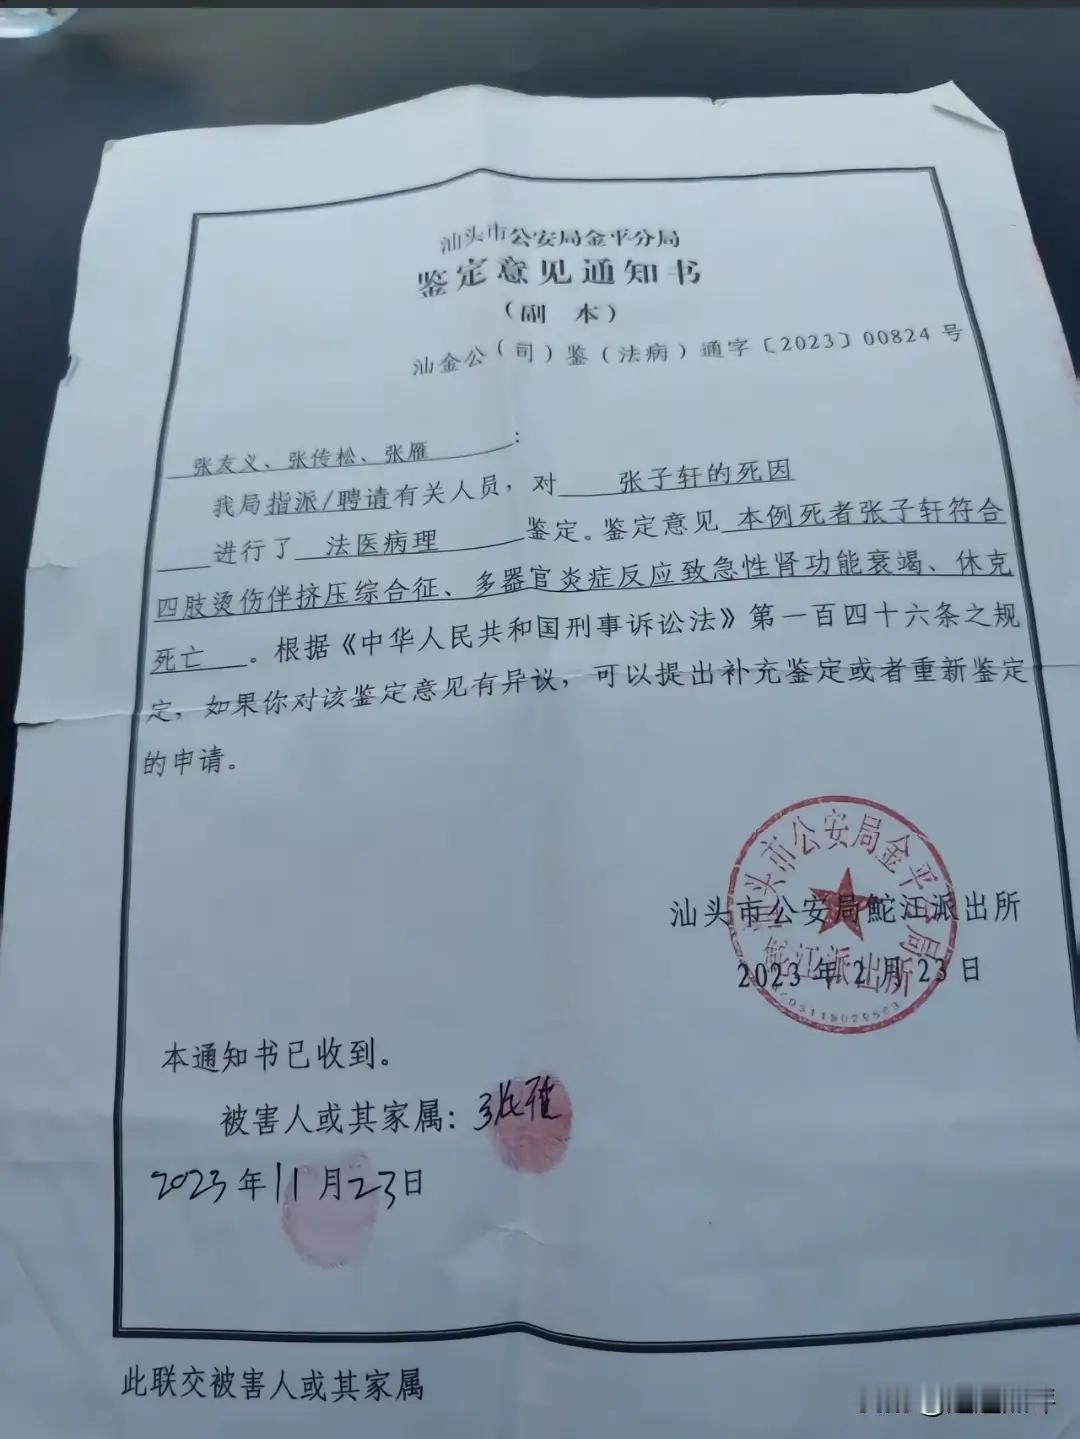 汕头市公安局金平分局
鉴定意见通知书
（副 本）
汕金公（司）鉴（法病）通字〔2023〕00824 号
张友义、张传松、张雁：
我局指派/聘请有关人员，对 张子轩的死因
进行了 法医病理 鉴定。鉴定意见 本例死者张子轩符合
四肢烫伤伴挤压综合征、多器官炎症反应致急性肾功能衰竭、休克
死亡 。根据《中华人民共和国刑事诉讼法》第一百四十六条之规
定，如果你对该鉴定意见有异议，可以提出补充鉴定或者重新鉴定
的申请。
汕头市公安局金平分局
汕头市公安局鮀江派出所
2023 年 2 月 23 日
鮀江派出所
本通知书已收到。
被害人或其家属：张雁
2023 年 11 月 23 日
此联交被害人或其家属